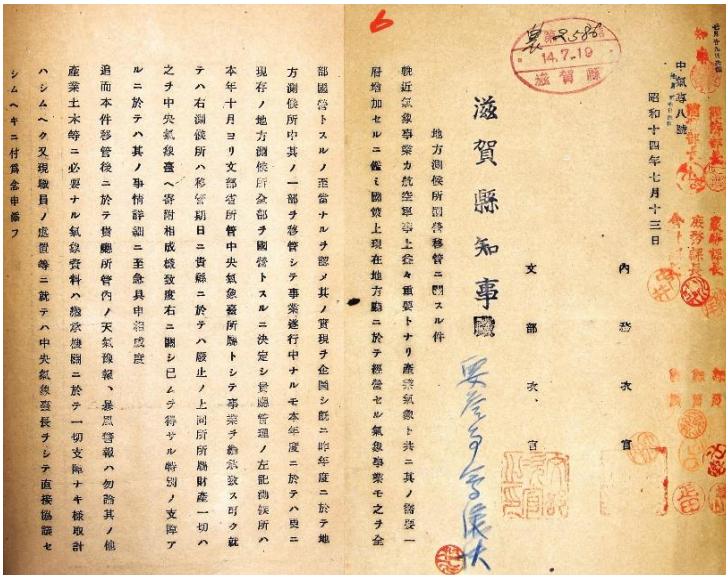 中氣專八號
昭和十四年七月十三日
內務次官
文部次官
第2586
14.7.19
滋賀縣
滋賀縣知事殿
地方測候所國營移管ニ關スル件
輓近氣象事業カ航空軍事上益々重要トナリ產業氣象ト共ニ其ノ需要一
層增加セルニ鑑ミ國策上現在地方廳ニ於テ經營セル氣象事業モ之ヲ全
部國營トスルノ至當ナルヲ認メ其ノ實現ヲ企圖シ旣ニ昨年度ニ於テ地
方測候所中其ノ一部ヲ移管シテ事業遂行中ナルモ本年度ニ於テハ更ニ
現存ノ地方測候所全部ヲ國營トスルニ決定シ貴廳管理ノ左記測候所ハ
本年十月ヨリ文部省所管中央氣象臺所屬トシテ事業ヲ繼承致ス可ク就
テハ右測候所ハ移管期日ニ貴縣ニ於テハ廢止ノ上同所所屬財產一切ハ
之ヲ中央氣象臺ヘ寄附相成樣致度右ニ關シ已ムヲ得サル特別ノ支障ア
ルニ於テハ其ノ事情詳細ニ至急具申相成度
追而本件移管後ニ於テ貴廳所管內ノ天氣豫報、暴風警報ハ勿論其ノ他
產業土木等ニ必要ナル氣象資料ハ繼承機關ニ於テ一切支障ナキ樣取計
ハシムヘク又現職員ノ處置等ニ就テハ中央氣象臺長ヲシテ直接協議セ
シムヘキニ付爲念申添フ